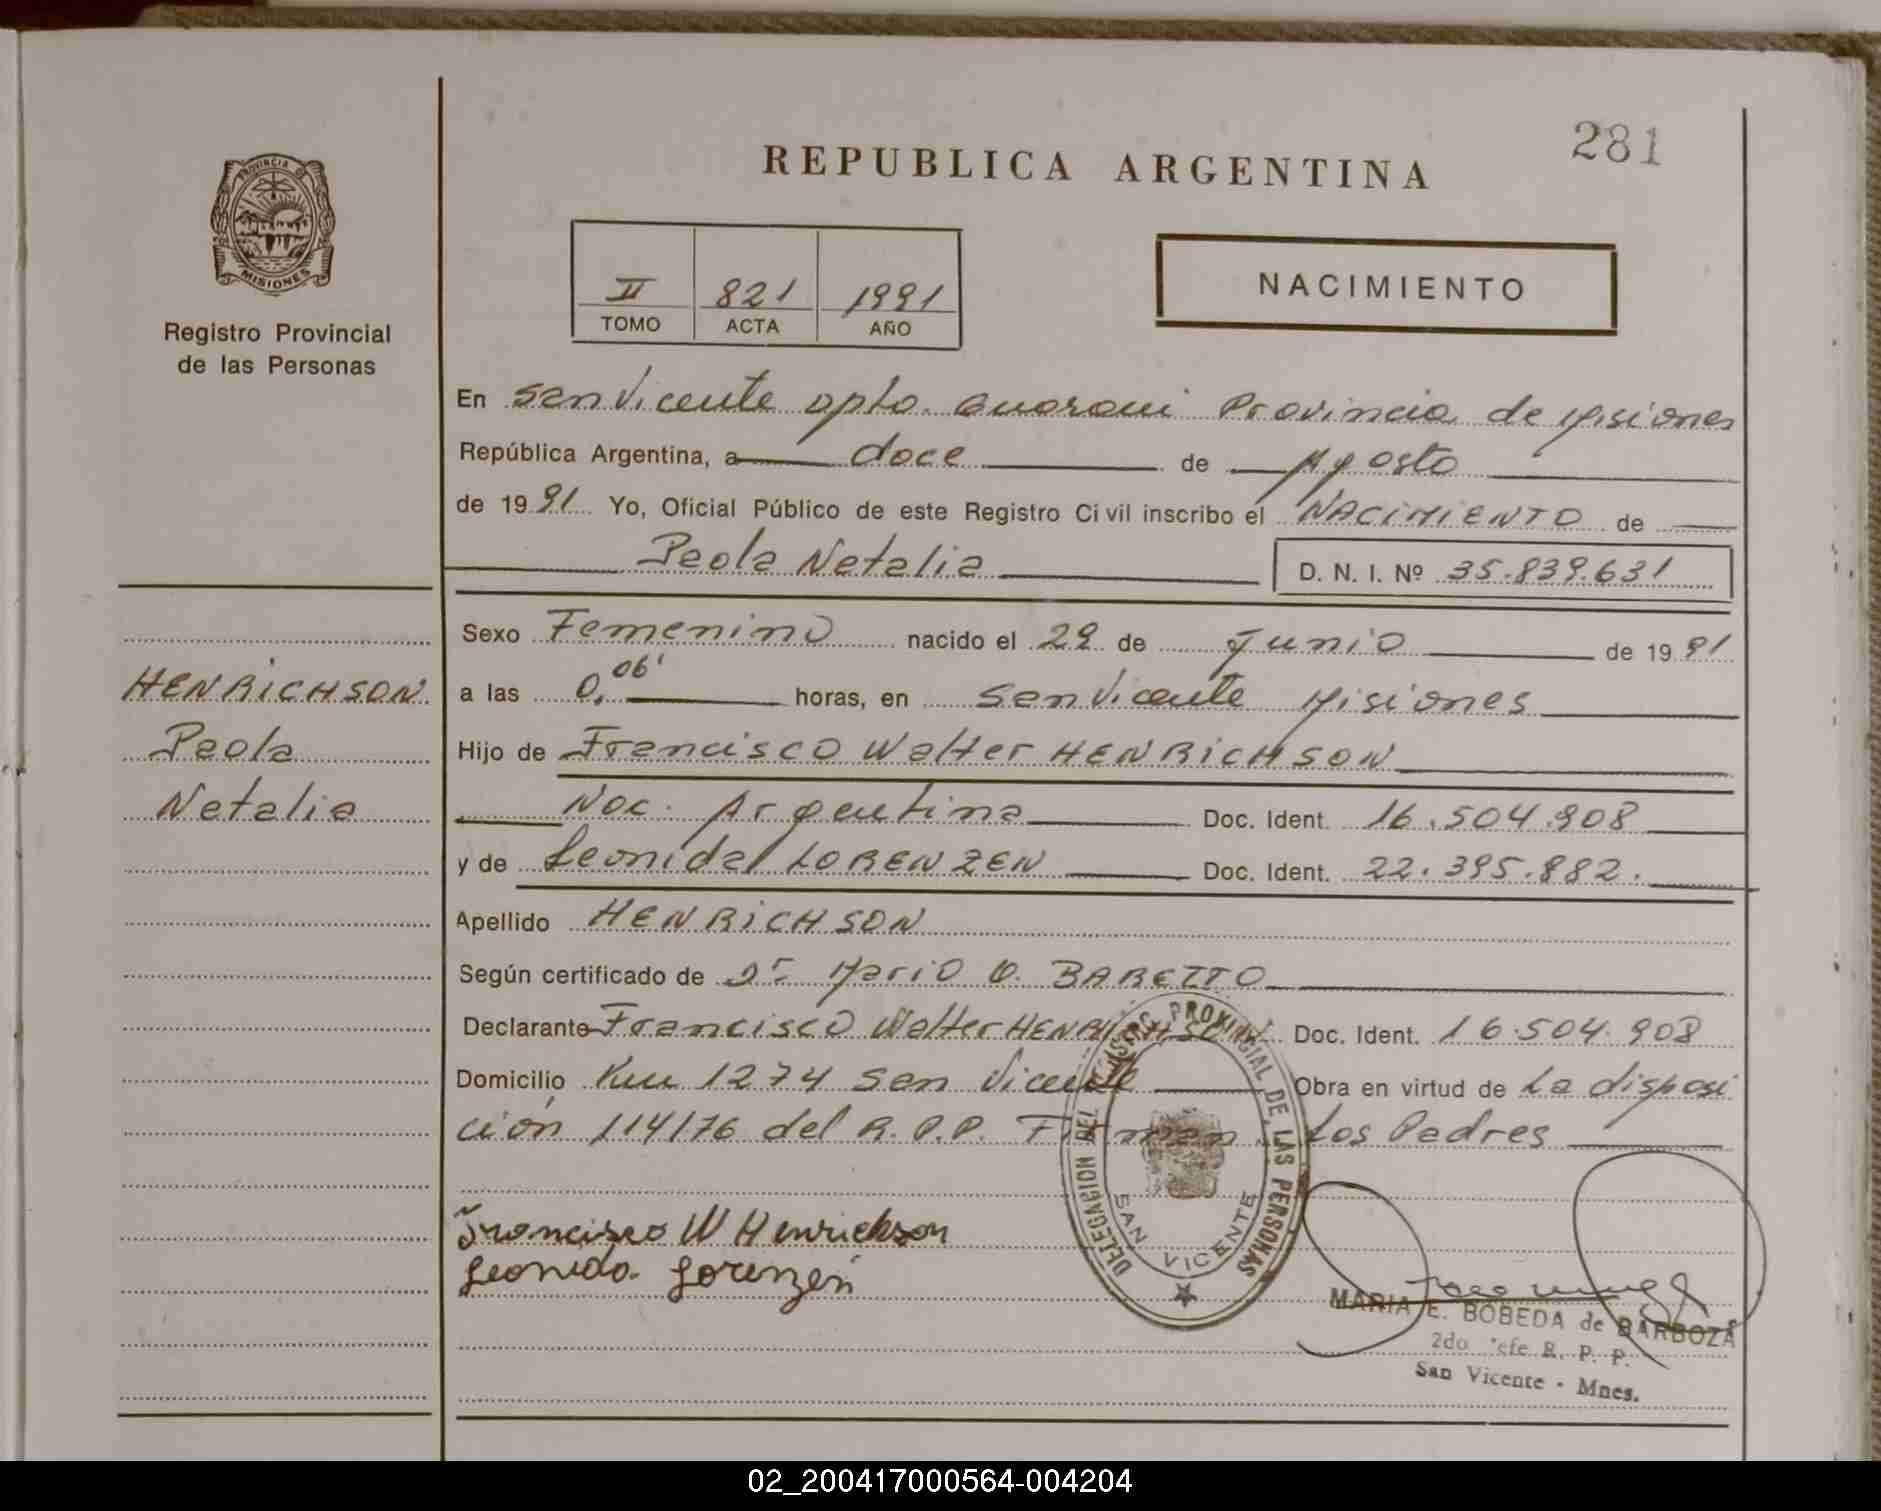 281
REPUBLICA ARGENTINA
PROVINCIA DE
MISIONES
Registro Provincial
de las Personas
II 821 1991
TOMO ACTA AÑO
NACIMIENTO
En San Vicente Dpto. Guarani Provincia de Misiones
República Argentina, a doce de Agosto
de 1991 Yo, Oficial Público de este Registro Civil inscribo el NACIMIENTO de
Paola Natalia D. N. I. Nº 35.839.631
Sexo Femenino nacido el 29 de Junio de 1991
HENRICHSON
Paola
Natalia
a las 0,06' horas, en San Vicente Misiones
Hijo de Francisco Walter HENRICHSON
Nac. Argentina Doc. Ident. 16.504.908
y de Leonida LORENZEN Doc. Ident. 22.395.882.
Apellido HENRICHSON
Según certificado de Dr Mario O. BARETTO
Declarante Francisco Walter HENRICHSON Doc. Ident. 16.504.908
Domicilio Km 1274 San Vicente Obra en virtud de La disposi
ción 114/76 del R.P.P. Firman: Los Padres
DELEGACION DEL REGISTRO PROVINCIAL DE LAS PERSONAS
SAN VICENTE
Francisco W Henrickson
Leonida Lorenzen
MARIA E. BOBEDA de BARBOZA
2do Jefe R. P. P.
San Vicente - Mnes.
02_200417000564-004204